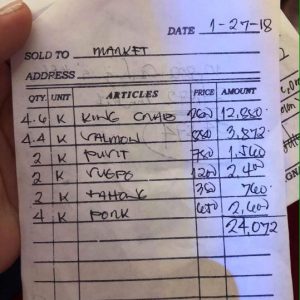 DATE 1-27-18
SOLD TO MARKET
ADDRESS
QTY. UNIT ARTICLES PRICE AMOUNT
4.6 K KING CRABS 12,880
4.4 K SALMON 880 3,872
2 K 780 1,560
2 K 1200 2,400
2 K TAHONG 380 760
4 K PORK 650 2,600
24,072